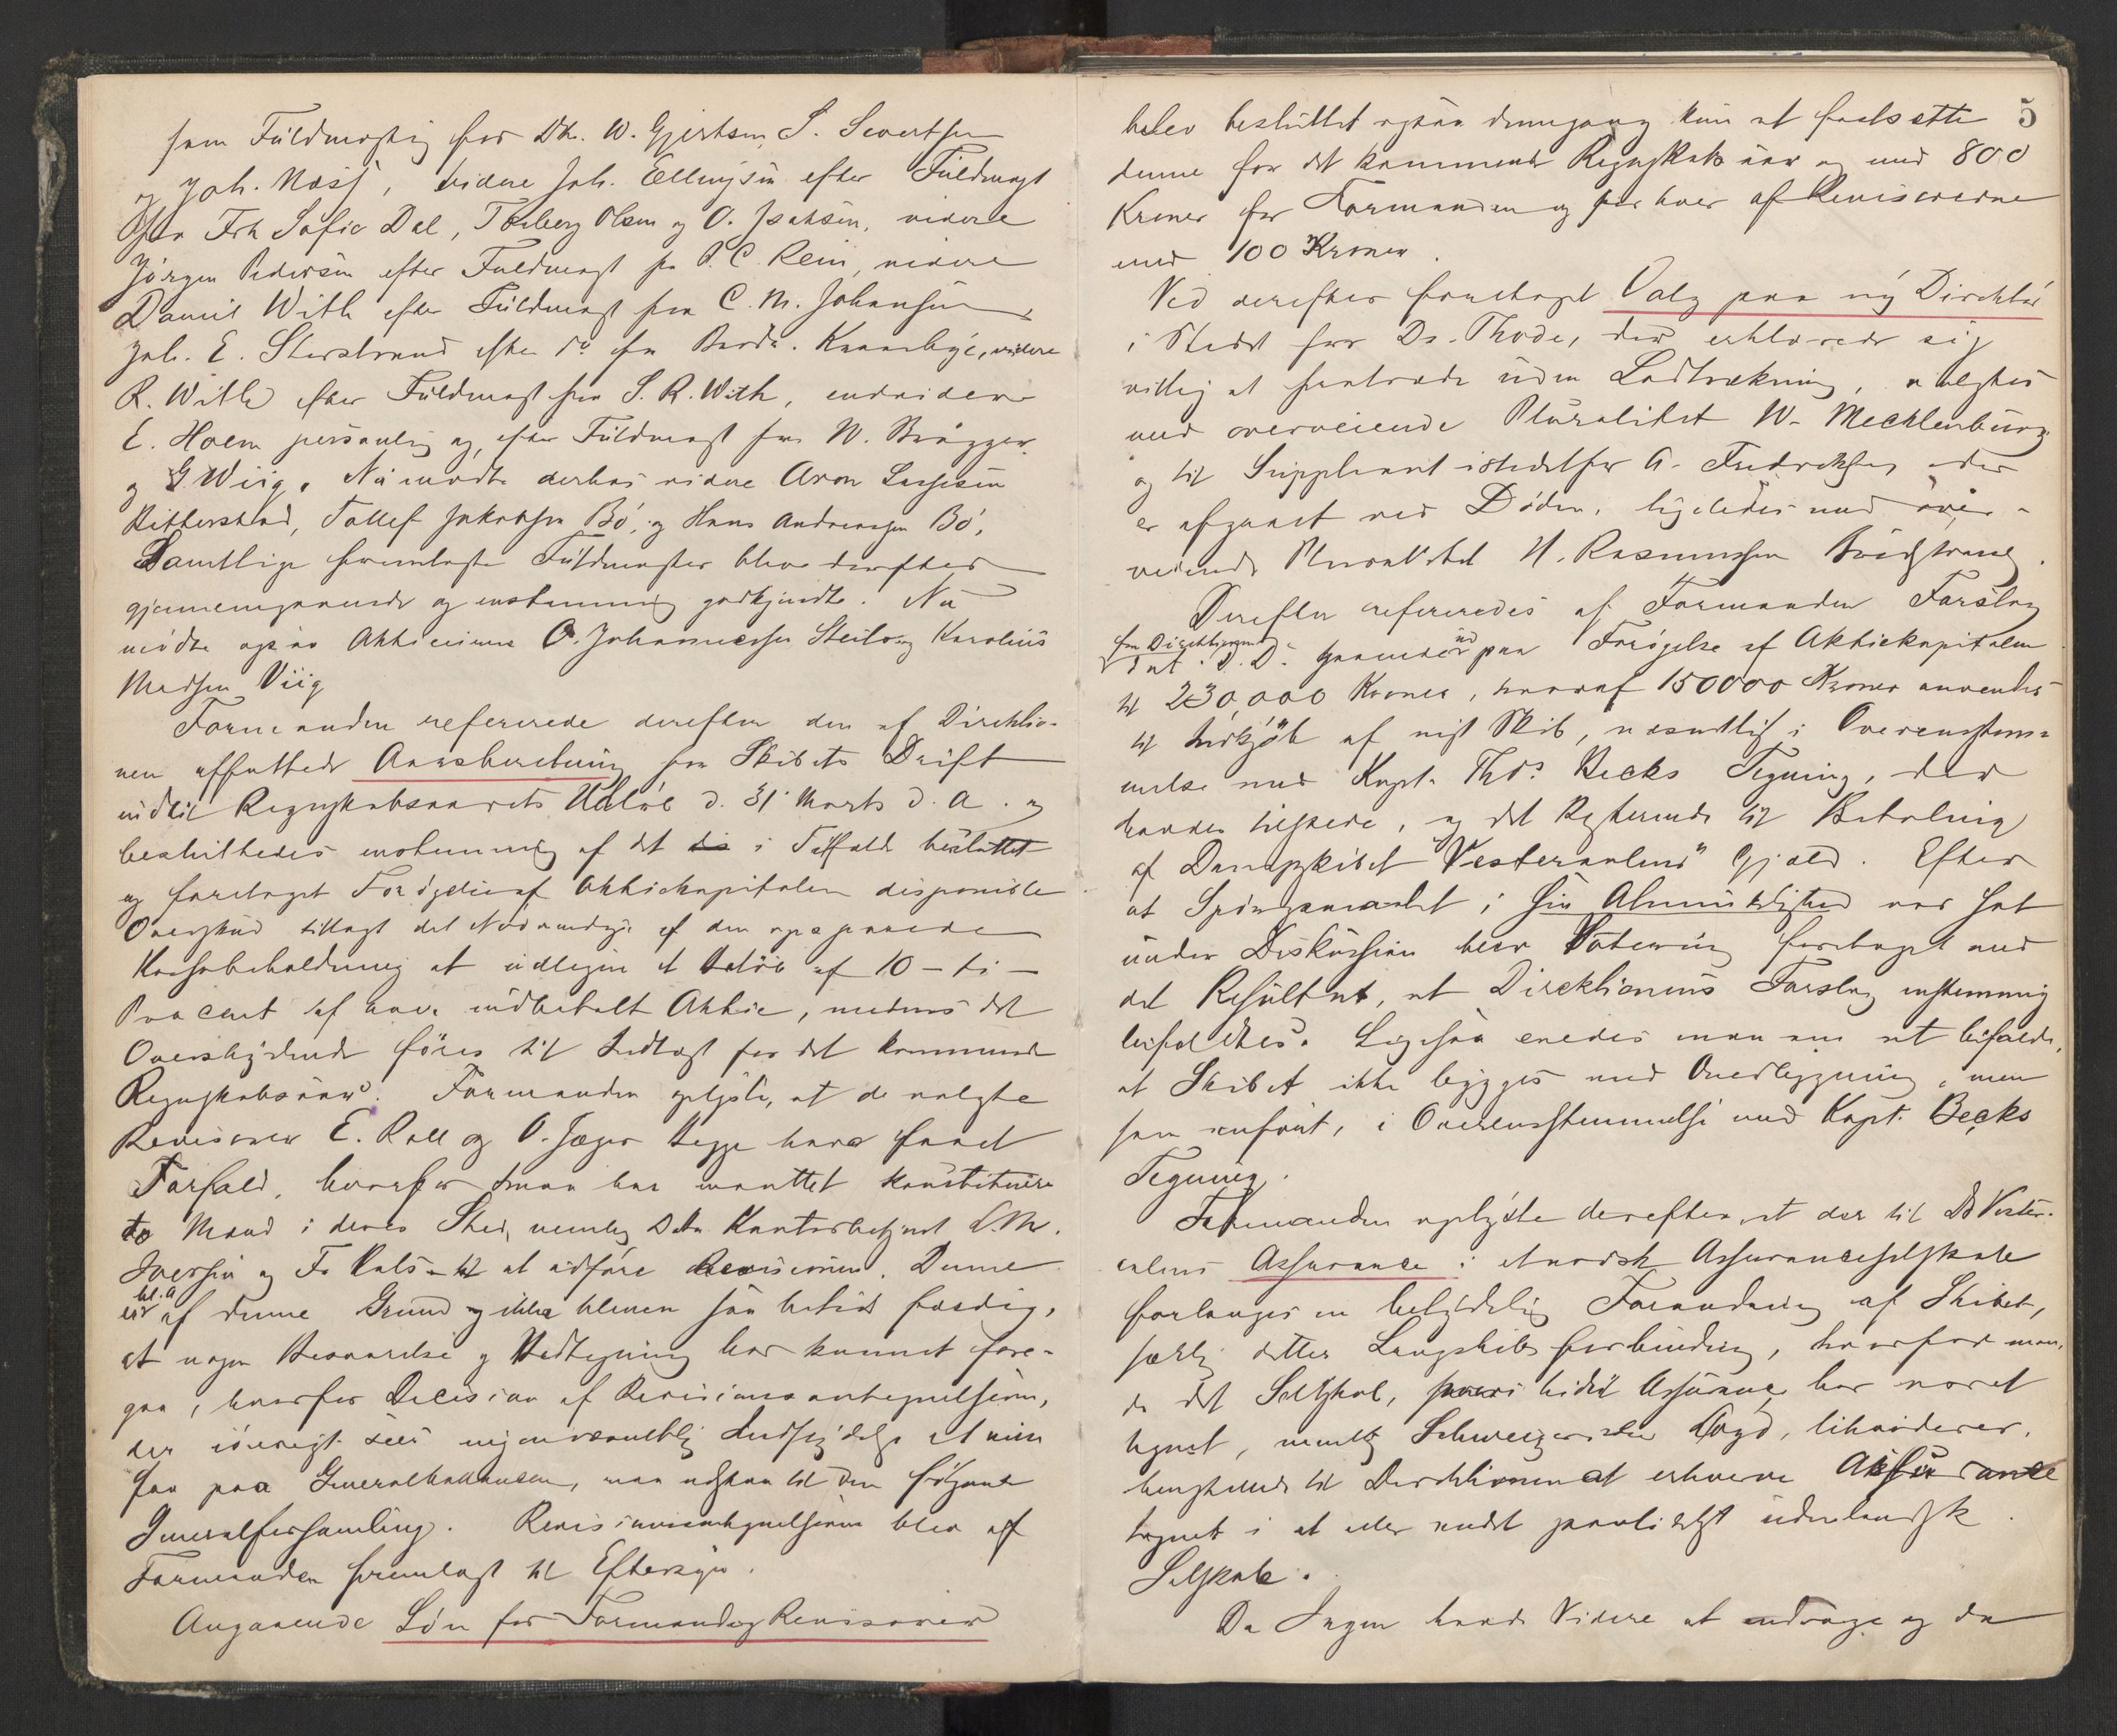 som Fuldmægtig for Dhr. W. Gjertsen, S. Sivertsen
og Joh. Næss, videre Joh. Ellingsen efter Fuldmagt
fra Frk Sofie Dal, Thalberg Olsen og O. Isaksen, videre
Jørgen Pedersen efter Fuldmagt fra P. C. Rein, videre
Daniel With efter Fuldmagt fra C. M. Johansen,
Joh. E. Storstrand efter do fra videre
R. With efter Fuldmagt fra S. R. With, endvidere
E. Holm personlig og efter Fuldmagt fra W. Brügger
og G. Wiig. Nu mødte derhos videre Aron Lassesen
Rittersbad, Tollef Jakobsen Bö, og Hans Andreassen Bö.
Samtlige fremlagte Fuldmagter blev derefter
gjennemgaaende og enstemmig godkjendte. Nu
mødte ogsaa Aktieeierne O. Johannessen Steilo og Karolius
Madsen Viig
Formanden refererede derefter den af Direktio-
nen affattede Aarsberetning for Skibets Drift
indtil Regnskabsaarets Udløb d. 31 Marts d. A. og
besluttedes enstemmig af det i Tilfælde besluttet
og foretaget Forøgelse af Aktiekapitalen disponible
Overskud tillagt det Nødvendige af den opsparede
Kassabeholdning at udlegge et Beløb af 10 – ti –
Procent af hver indbetalt Aktie, medens det
Overskydende føres til Indtægt for det kommende
Regnskabsaar. Formanden oplyste, at de valgte
Revisorer E. Roll og O. Jæger begge have faaet
Forfald, hvorfor man har maattet konstituere
to Mænd i deres Sted, nemlig Kontorbetjent L. M.
Iversen og Fr. Kuls at udføre Revisionen. Denne
er bl. a. af denne Grund ikke bleven saa betids færdig,
at nogen Besvarelse og Vedtegning har kunnet fore-
gaa, hvorfor Decision af Revisionsantegnelserne,
der iøvrigt sees uigjenvæntlig Indflydelse at ville
faa paa Generalbalancen, maa udstaa til den følgende
Generalforsamling. Revisionsantegnelserne blev af
Formanden fremlagt til Eftersyn.
Angaaende Løn for Formand og Revisorer
5
blev besluttet ogsaa dennegang kun at fastsætte
denne for det kommende Regnskabsaar og med 800
Kroner for Formanden og for hver af Revisorerne
med 100 Kroner.
Ved derefter foretaget Valg paa ny Direktør
i Stedet for Dr. Thode, der erklærede sig
villig at fratræde uden Lodtrækning, valgtes
med overveiende Pluralitet W. Mecklenburg
og til Suppleant istedetfor A. Fredriksen der
er afgaaet ved Døden, ligeledes med over-
veiende Pluralitet H. Rasmussen
Derefter refereredes af Formanden Forslag
fra Direktionen
dat. D. D. gaaende ud paa Forøgelse af Aktiekapitalen
til 230,000 Kroner, hvoraf 150000 Kroner anvendes
til Indkjøb af nyt Skib, væsentligt i Overensstem-
melse med Kapt. Ths. Becks Tegning, der
havdes tilstede, og det Resterende til Betaling
af Dampskibet "Vesteraalens" Gjæld. Efter
at Spørgsmaalet i sin Almindelighed var sat
under Diskussion blev Votering foretaget med
det Resultat, at Direktionens Forslag enstemmig
bifaldtes. Ligesaa enedes man om at bifalde,
at Skibet ikke bygges med Overbygning, men
som anført, i Overensstemmelse med Kapt. Becks
Tegning.
Formanden oplyste derefter, at der til Ds Vester-
aalens Assurance i norsk Assuranceselskab
forlanges en betydelig Forandring af Skibet,
særlig dettes Langskibs forbinding, hvorfor man,
da det Selskab, hvori hidtil Assurance har været
tegnet, nemlig Schweizerische Loyd, likviderer,
henstillede til Direktionen at erhverve Assurance
tegnet i et eller andet paalideligt udenlandsk
Selskab.
Da Ingen havde Videre at andrage og da